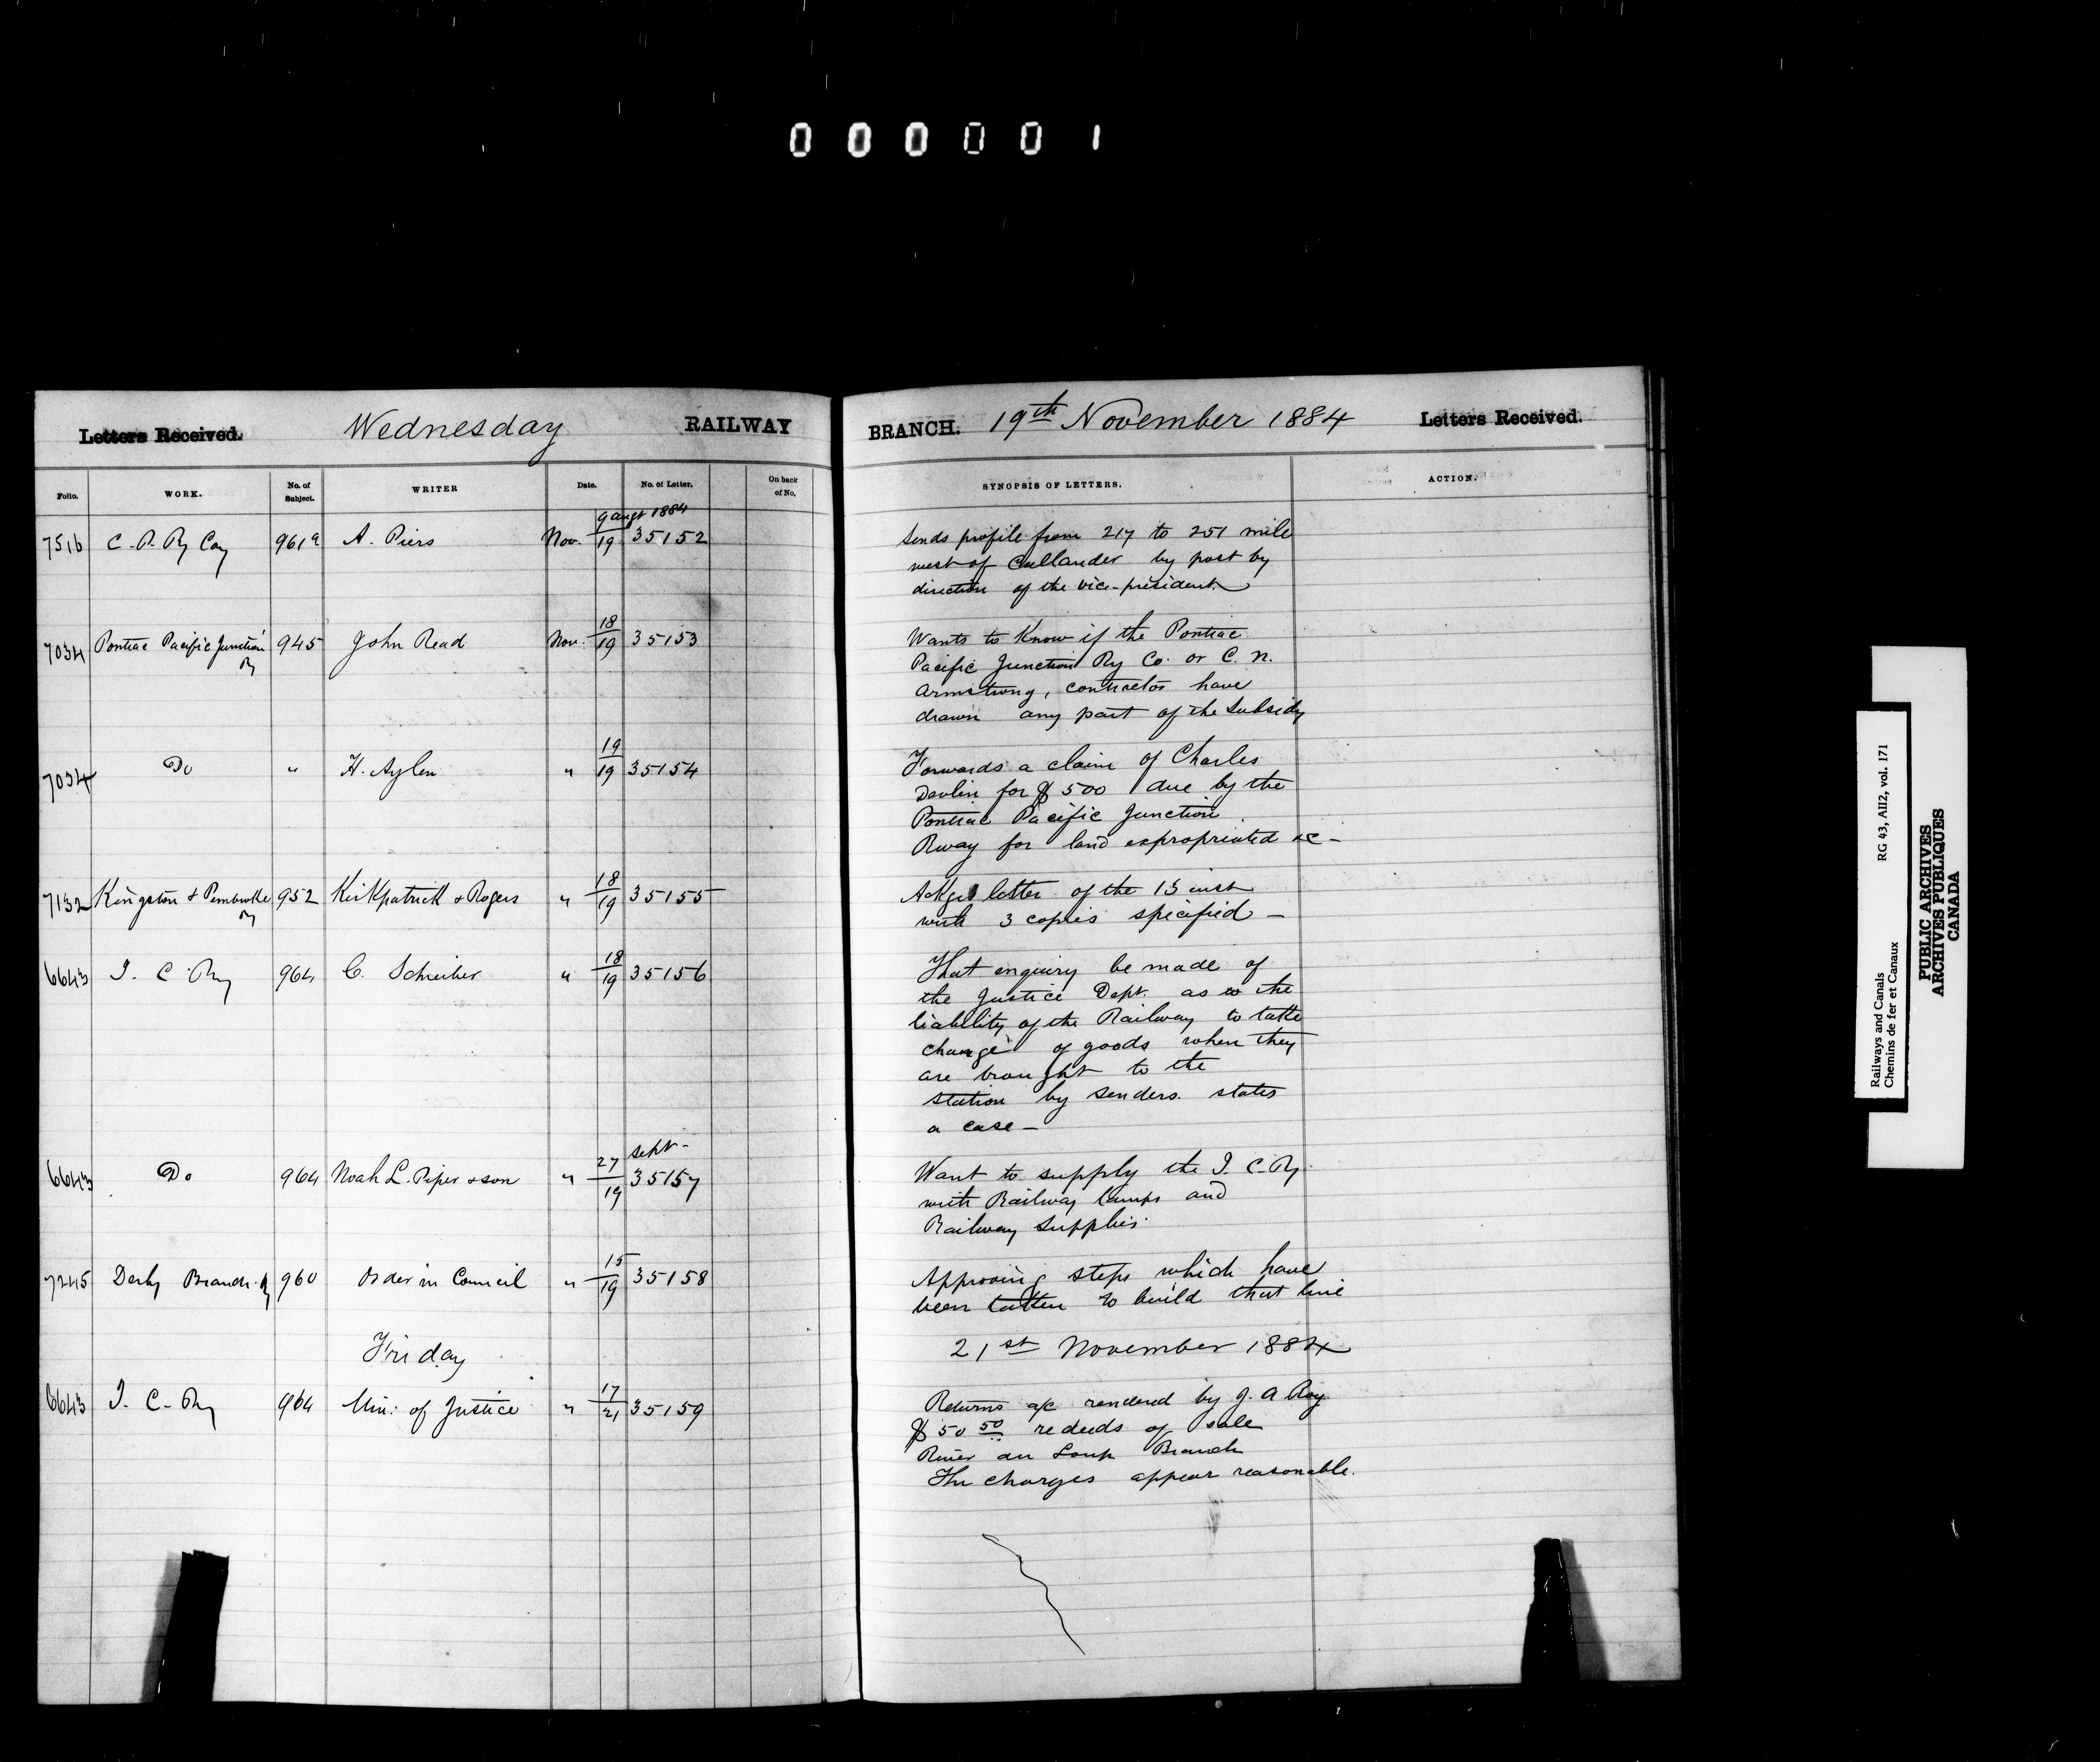 000001
Letters Received. Wednesday RAILWAY BRANCH. 19th November 1884 Letters Received.
Folio. WORK. No. of Subject. WRITER Date. No. of Letter. On back of No. SYNOPSIS OF LETTERS. ACTION.
7516 C. P. Ry Coy 961a A. Piers Nov. 9 augt 1884/19 35152 Sends profile from 217 to 251 mile
west of Callander by post by
direction of the vice-president.
7034 Pontiac Pacific Junction Ry 945 John Read Nov. 18/19 35153 Wants to Know if the Pontiac
Pacific Junction Ry Co. or C. N.
Armstrong, contractor have
drawn any part of the Subsidy
7034 Do " H. Aylen " 19/19 35154 Forwards a claim of Charles
Devlin for $500 due by the
Pontiac Pacific Junction
Rway for land expropriated &c -
7132 Kingston & Pembroke Ry 952 Kirkpatrick & Rogers " 18/19 35155 Ackgs letter of the 13 inst
with 3 copies specified -
6643 I. C. Ry 964 C. Schreiber " 18/19 35156 That enquiry be made of
the Justice Dept. as to the
liability of the Railway to take
charge of goods when they
are brought to the
station by senders. states
a case -
6643 Do 964 Noah L. Piper & son " 27 Sept -/19 35157 Want to supply the I. C. Ry.
with Railway lamps and
Railway Supplies.
7245 Derby Branch Ry 960 Order in Council " 15/19 35158 Approving steps which have
been taken to build that line
Friday 21st November 1884
6643 I. C. Ry 964 Min: of Justice " 17/21 35159 Returns a/c rendered by J. A Roy
$50 50 re deeds of sale
River du Loup Branch
The charges appear reasonable.
Railways and Canals RG 43, AII2, vol. 171
Chemins de fer et Canaux
PUBLIC ARCHIVES
ARCHIVES PUBLIQUES
CANADA